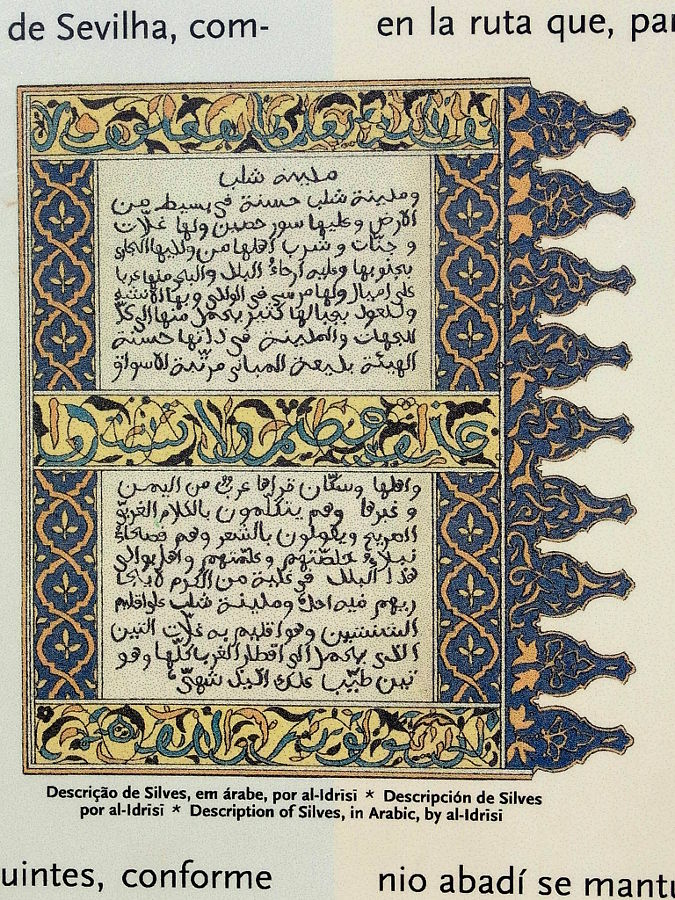 de Sevilha, com-
en la ruta que, par
مدينة شلب
ومدينة شلب حسنة في بسيط من
الأرض وعليها سور حصين ولها غلّات
و جنّات و شرب أهلها من واديها الجاري
بجنوبها وعليه أرحاء البلد والبحر منها غربا
على أميال ولها مرسى في الوادي وبها الإنشاء
والعود بجبالها كثير يحمل منها إلى كلّ
الجهات والمدينة في ذاتها حسنة
الهيئة بديعة المباني مرتّبة الأسواق
وأهلها وسكّان قراها عرب من اليمن
و غيرها وهم يتكلّمون بالكلام العربيّ
الصريح ويقولون بالشعر وهم فصحاء
نبلاء خاصّتهم وعامّتهم وأهل بوادي
هذا البلد في غاية من الكرم لا
يهم فيه أحد ومدينة شلب على إقليم
الشنشين وهو إقليم به غلّات التين
الذي يحمل إلى أقطار الغرب كلّها وهو
تين طيّب علك شهيّ
Descrição de Silves, em árabe, por al-Idrisī * Descripción de Silves
por al-Idrisī * Description of Silves, in Arabic, by al-Idrisi
uintes, conforme
nio abadí se mantu